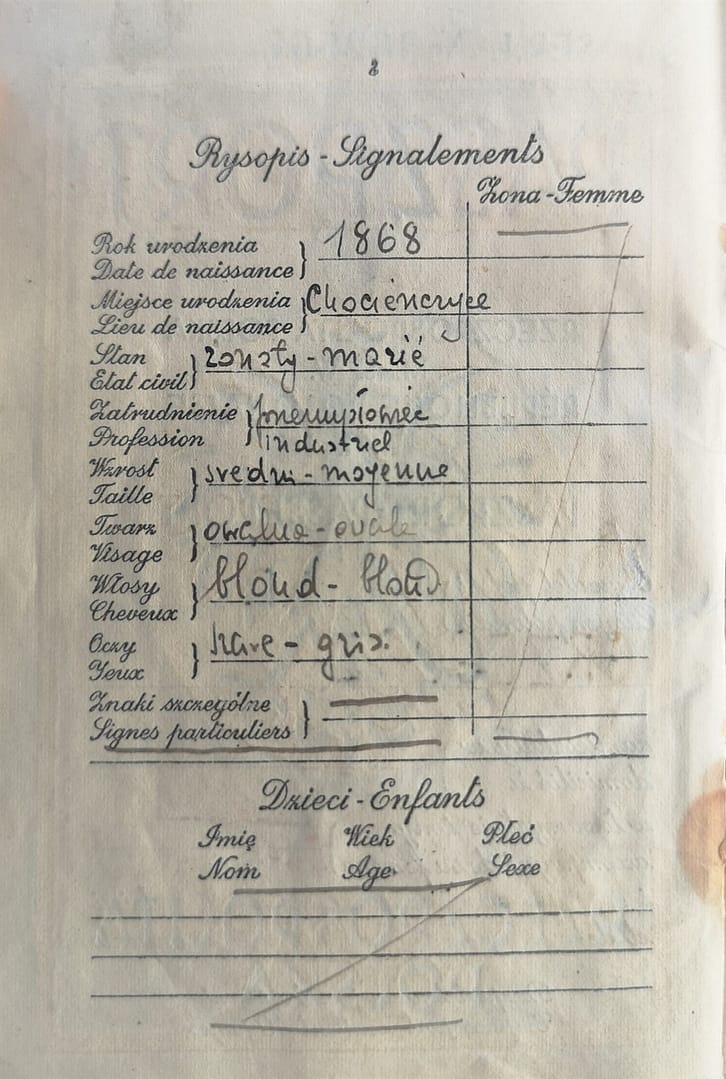 2
Rysopis - Signalements
Żona - Femme
Rok urodzenia
Date de naissance
1868
Miejsce urodzenia
Lieu de naissance
Stan
Etat civil
żonaty - marié
Zatrudnienie
Profession
przemysłowiec
industriel
Wzrost
Taille
średni - moyenne
Twarz
Visage
owalna - ovale
Włosy
Cheveux
blond - blond
Oczy
Yeux
- gris
Znaki szczególne
Signes particuliers
Dzieci - Enfants
Imię Wiek Płeć
Nom Age Sexe